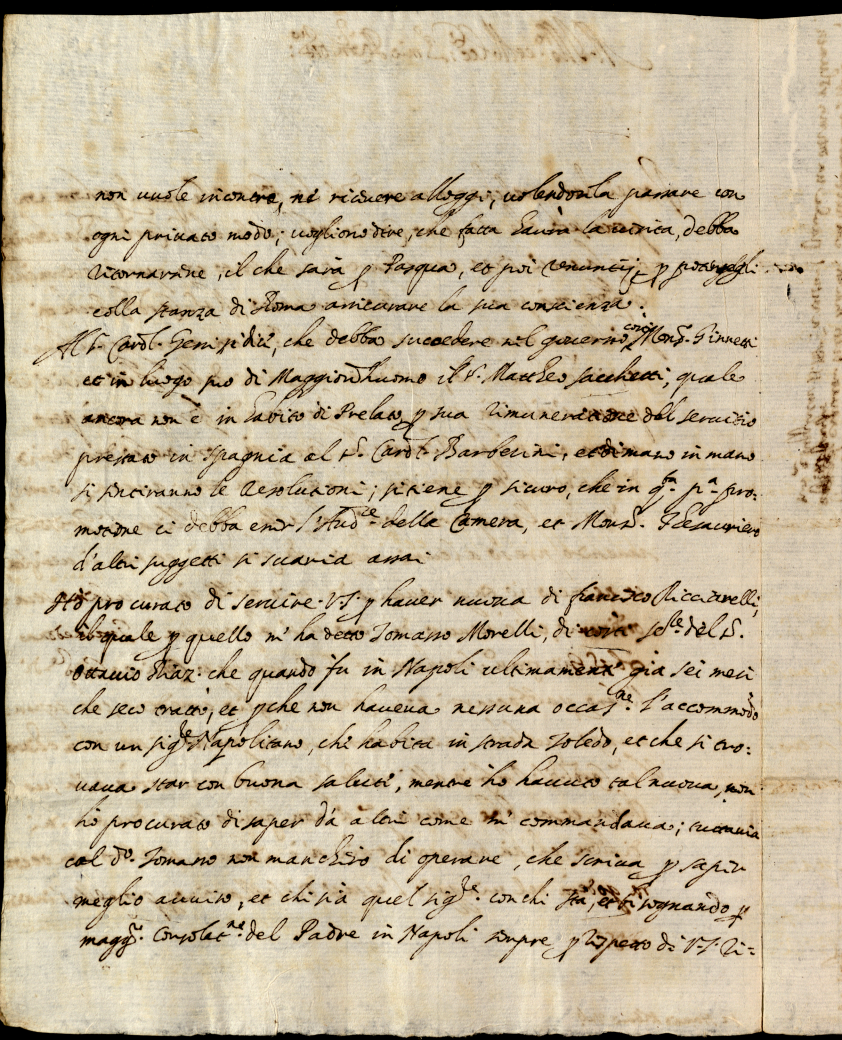 non vuole incontro, né ricevere alloggi, volendosela passare con
ogni privato modo; vogliono dire, che fatta havrà la visita, debba
ritornarsene, il che sarà p Pasqua, et poi renuntij, p
colla stanza di Roma assicurare la sua conscienza.
Al s.r Card.l Gessi si dice, che debba succedere nel governo Mons.r Ginnetti
et in luogo suo di Maggiordhuomo il s.r Mattheo Sacchetti, quale
ancora non è in habito di Prelato, p sua rimuneratione del servitio
prestato in Spagnia al s.r Card.l Barberini, et di mano in mano
si sentiranno le resolutioni; si tiene p sicuro, che in q.sta p.a pro=
motione ci debba esser l'Aud.re della Camera, et Mons.r Thesauriero
d'altri suggetti si svaria assai
Hò procurato di servire V.S. p haver nuova di francesco Ricciarelli,
il quale p quello m'ha detto Tomasso Morelli, di del s.r
Ottavio Diaz. che quando fu in Napoli ultimamente già sei mesi
che seco trattò, et p che non haveva nessuna occas.ne l'accommodò
con un sig.re Napolitano, che habita in strada Toledo, et che si tro=
vava star con buona salute, mentre hò havuto tal nuova, non
hò procurato di saper dà altri come m' commandava; tuttavia
col d.o Tomasso non mancherò di operare, che scriva p saper
meglio avviso, et chi sia quel sig.re con chi stà, et bisognando p
magg.r consolat.ne del Padre in Napoli sempre p rispetto di V.S. ri=